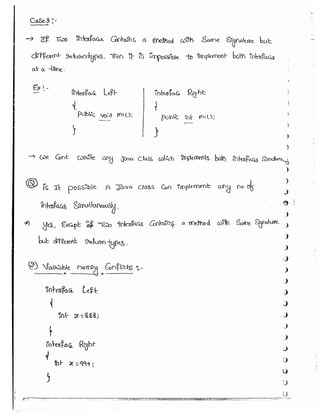 Case3 :-
→ If Two interfaces Contains a method with Same Signature but
different return types, Then it is impossible to implement both interfaces
at a time.
Ex:-
interface Left
{
public void m1();
}
interface Right
{
public int m1();
}
→ we Can't write any Java Class which implements both interfaces Simultaneously
Q) Is It possible A Java class Can implement any no. of
interfaces Simultaneously.
A) Yes, Except if Two interfaces Contains a method with Same Signature
but different return types.
Variable naming Conflicts :-
interface Left
{
int x=888;
}
interface Right
{
int x=999;
}